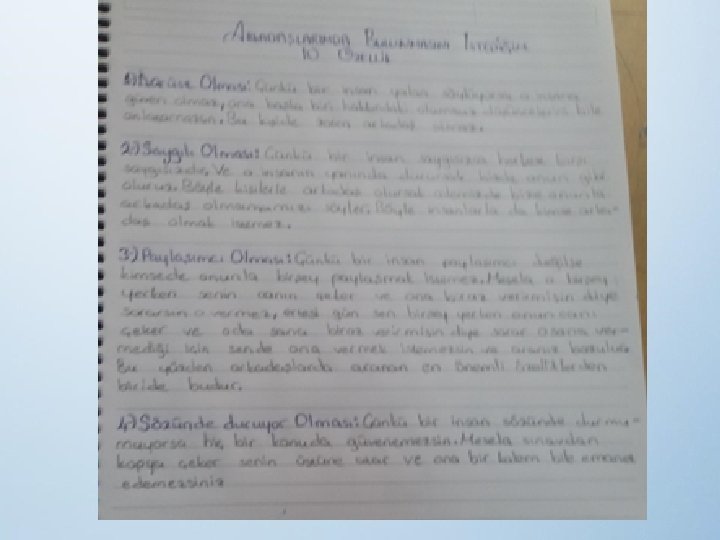 Arkadaşlarımda Bulunmasını İstediğim
10 Özellik
Olması: Çünkü bir insan yalan söylüyorsa o insana
güven olmaz, ona başka biri hakkındaki olumsuz düşüncelerini bile
anlatamazsın. Bu kişide zaten arkadaş olmaz.
2) Saygılı Olması: Çünkü bir insan saygısızca hareket
saygısızdır. Ve o insanın yanında durursak bizde onun gibi
oluruz. Böyle kişilerle arkadaş olursak ailemizde bize onunla
arkadaş olmamamızı söyler. Böyle insanlarla da kimse arka-
daş olmak istemez.
3) Paylaşımcı Olması: Çünkü bir insan paylaşımcı değilse
kimsede onunla birşey paylaşmak istemez. Mesela o birşey
yerken senin canın çeker ve ona biraz verirmisin diye
sorarsın o vermez, ertesi gün sen birşey yerken onun canı
çeker ve oda sana biraz verirmisin diye sorar o sana ver-
mediği için sende ona vermek istemezsin ve aranız bozulur.
Bu yüzden arkadaşlarda aranan en önemli özelliklerden
biride budur.
4) Sözünde duruyor Olması: Çünkü bir insan sözünde durmu-
muyorsa hiç bir konuda güvenemezsin. Mesela sınavdan
kopya çeker senin üstüne atar ve ona bir kalem bile emanet
edemezsiniz